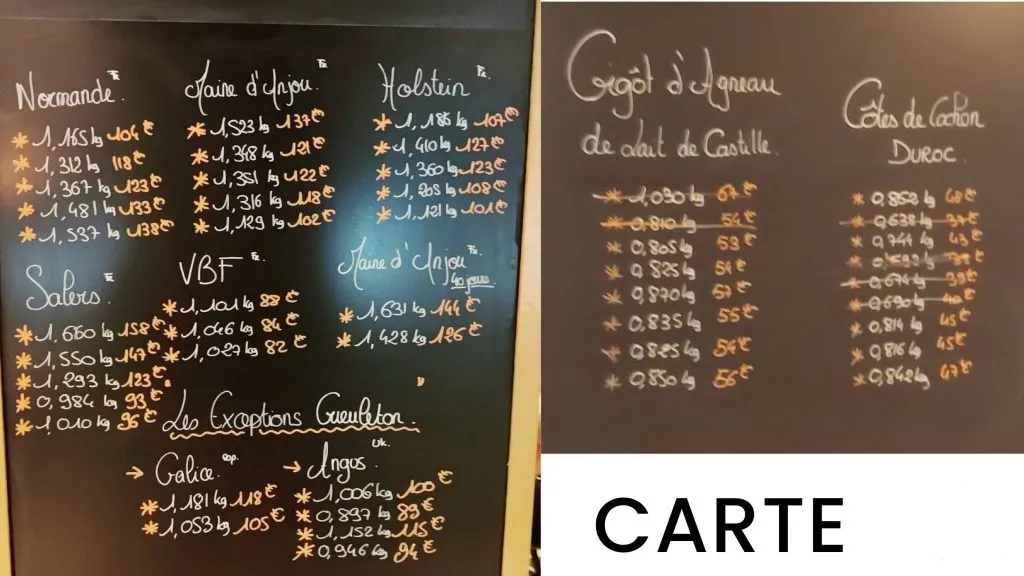 Normande. Fr
* 1,165 kg 104 €
* 1,312 kg 118 €
* 1,367 kg 123 €
* 1,481 kg 133 €
* 1,537 kg 138 €
Maine d'Anjou. Fr
* 1,523 kg 137 €
* 1,348 kg 121 €
* 1,351 kg 122 €
* 1,316 kg 118 €
* 1,129 kg 102 €
Holstein Fr.
* 1,185 kg 107 €
* 1,410 kg 127 €
* 1,360 kg 123 €
* 1,205 kg 108 €
* 1,121 kg 101 €
Salers. Fr
* 1,660 kg 158 €
* 1,550 kg 147 €
* 1,293 kg 123 €
* 0,984 kg 93 €
* 1,010 kg 96 €
VBF Fr.
* 1,101 kg 88 €
* 1,046 kg 84 €
* 1,027 kg 82 €
Maine d'Anjou Fr.
40 jours.
* 1,631 kg 144 €
* 1,428 kg 126 €
Les Exceptions Gueuleton.
→ Galice. esp.
* 1,181 kg 118 €
* 1,053 kg 105 €
→ Angus. UK.
* 1,006 kg 100 €
* 0,897 kg 89 €
* 1,152 kg 115 €
* 0,946 kg 94 €
Gigôt d'Agneau
de Lait de Castille.
* 1,030 kg 67 €
* 0,810 kg 54 €
* 0,805 kg 53 €
* 0,825 kg 54 €
* 0,870 kg 57 €
* 0,835 kg 55 €
* 0,825 kg 54 €
* 0,850 kg 56 €
Côtes de Cochon
DUROC.
* 0,852 kg 48 €
* 0,638 kg 37 €
* 0,741 kg 43 €
* 0,674 kg 39 €
* 0,690 kg 40 €
* 0,814 kg 45 €
* 0,816 kg 45 €
* 0,842 kg 47 €
CARTE